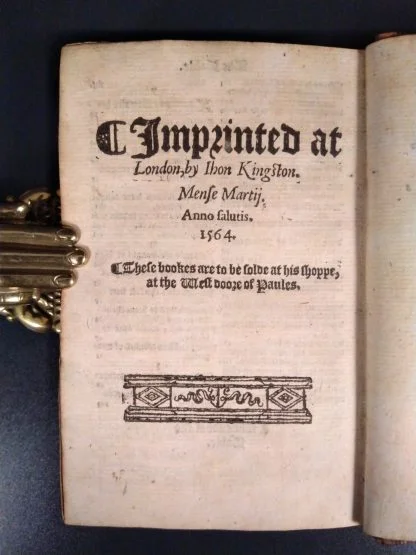 ¶ Imprinted at
London, by Ihon Kingston.
Mense Martij.
Anno salutis.
1564.
¶ These bookes are to be solde at his shoppe,
at the West doore of Paules.